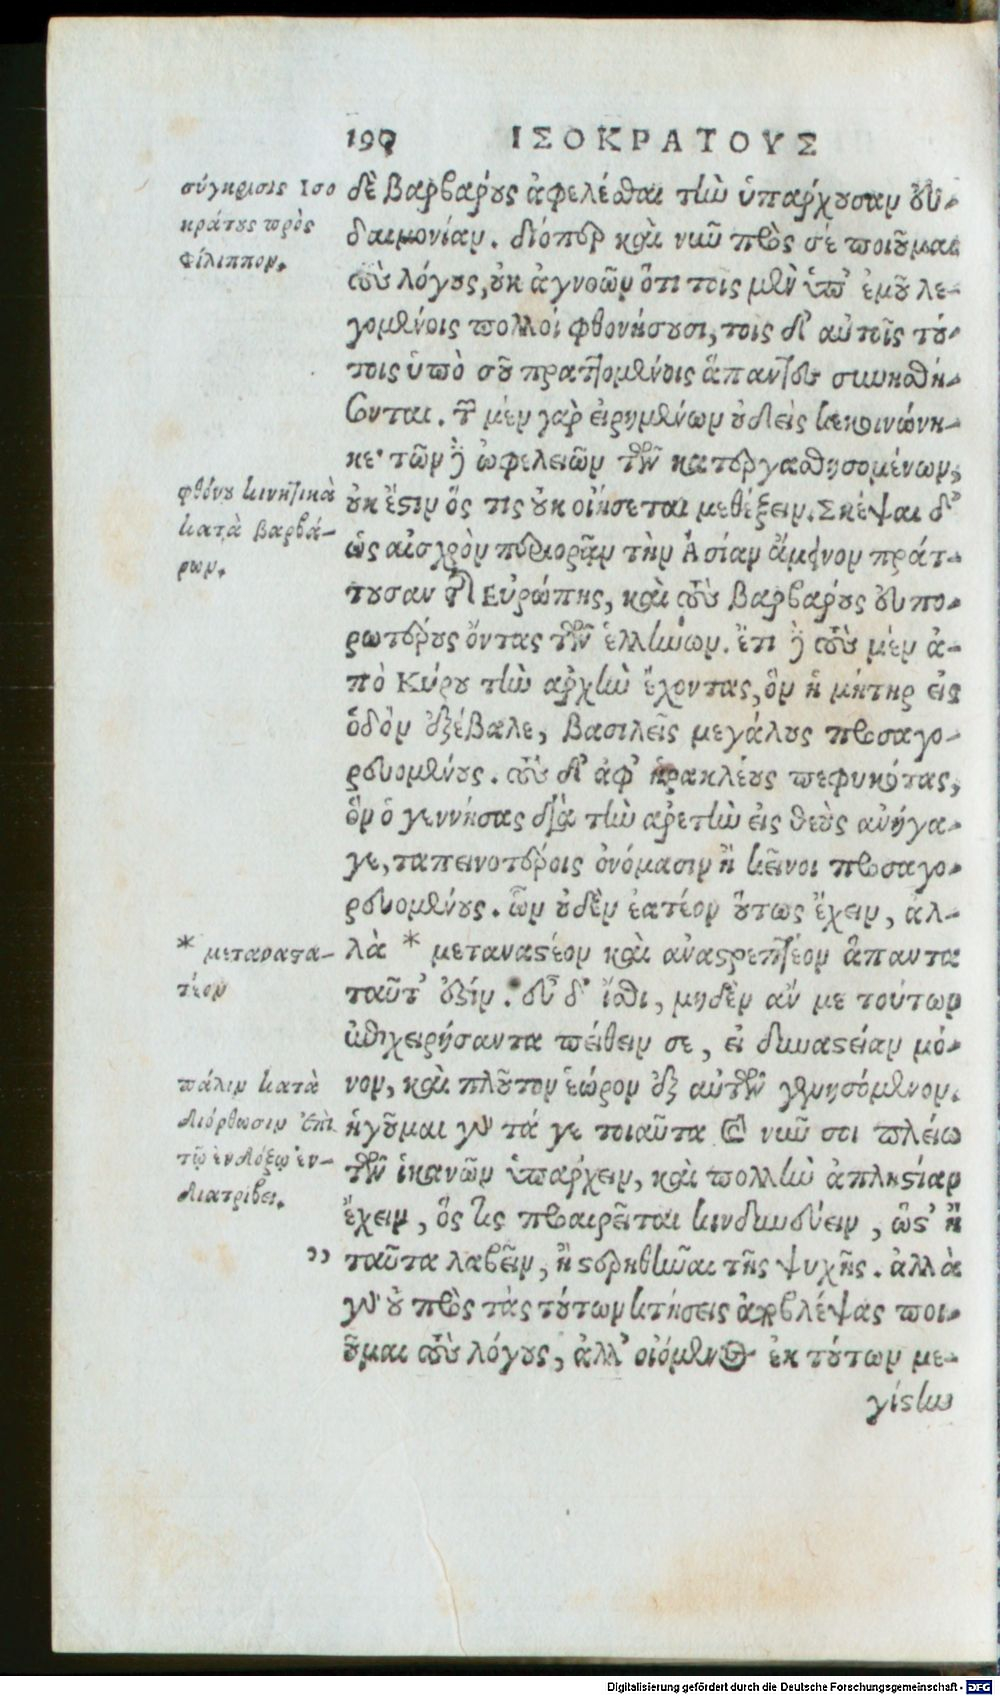 190 ΙΣΟΚΡΑΤΟΥΣ
σύγκρισις Ισο
κράτους πρὸς
Φίλιππον.
δὲ βαρβάρους ἀφελέσθαι τὴν ὑπάρχουσαν εὐ-
δαιμονίαν. διόπερ καὶ νῦν πρὸς σὲ ποιοῦμαι
τοὺς λόγους, οὐκ ἀγνοῶν ὅτι τοῖς μὲν ὑπ' ἐμοῦ λε-
γομένοις πολλοὶ φθονήσουσι, τοῖς δ' αὐτοῖς τού-
τοις ὑπὸ σοῦ πραττομένοις ἅπαντες συνησθή-
σονται. τῶν μὲν γὰρ εἰρημένων οὐδεὶς κεκοινώνη-
κε· τῶν δὲ ὠφελειῶν τῶν κατεργασθησομένων,
φθόνου κινητικὰ
κατὰ βαρβά-
ρων.
οὐκ ἔστιν ὅς τις οὐκ οἰήσεται μεθέξειν. Σκέψαι δ'
ὡς αἰσχρὸν περιορᾷν τὴν Ἀσίαν ἄμεινον πράτ-
τουσαν τῆς Εὐρώπης, καὶ τοὺς βαρβάρους εὐπο-
ρωτέρους ὄντας τῶν ἑλλήνων. ἔτι δὲ τοὺς μὲν ἀ-
πὸ Κύρου τὴν ἀρχὴν ἔχοντας, ὃν ἡ μήτηρ εἰς
ὁδὸν ἐξέβαλε, βασιλεῖς μεγάλους προσαγο-
ρευομένους. τοὺς δ' ἀφ' ἡρακλέους πεφυκότας,
ὃν ὁ γεννήσας διὰ τὴν ἀρετὴν εἰς θεοὺς ἀνήγα-
γε, ταπεινοτέροις ὀνόμασιν ἢ κεῖνοι προσαγο-
ρευομένους. ὧν οὐδὲν ἐατέον οὕτως ἔχειν, ἀλ-
* μεταστα-
τέον
λὰ * μεταναστέον καὶ ἀναστρεπτέον ἅπαντα
ταῦτ' ἐξίν. εὖ δ' ἴσθι, μηδὲν ἄν με τούτων
ἐπιχειρήσαντα πείθειν σε, εἰ δυναστείαν μό-
πάλιν κατὰ
διόρθωσιν ἐπὶ
τῷ ἐνδόξῳ ἐν-
διατρίβει.
νον, καὶ πλοῦτον ἑώρων ἐξ αὐτῶν γενησόμενον.
ἡγοῦμαι γὰρ τά γε τοιαῦτα καὶ νῦν σοι πλείω
τῶν ἱκανῶν ὑπάρχειν, καὶ πολλὴν ἀπληστίαν
ἔχειν, ὅς τις προαιρεῖται κινδυνεύειν, ὥστ' ἢ
,, ταῦτα λαβεῖν, ἢ στερηθῆναι τῆς ψυχῆς. ἀλλὰ
γὰρ οὐ πρὸς τὰς τούτων κτήσεις ἀποβλέψας ποι-
οῦμαι τοὺς λόγους, ἀλλ' οἰόμενος ἐκ τούτων με-
γίστην
Digitalisierung gefördert durch die Deutsche Forschungsgemeinschaft - DFG